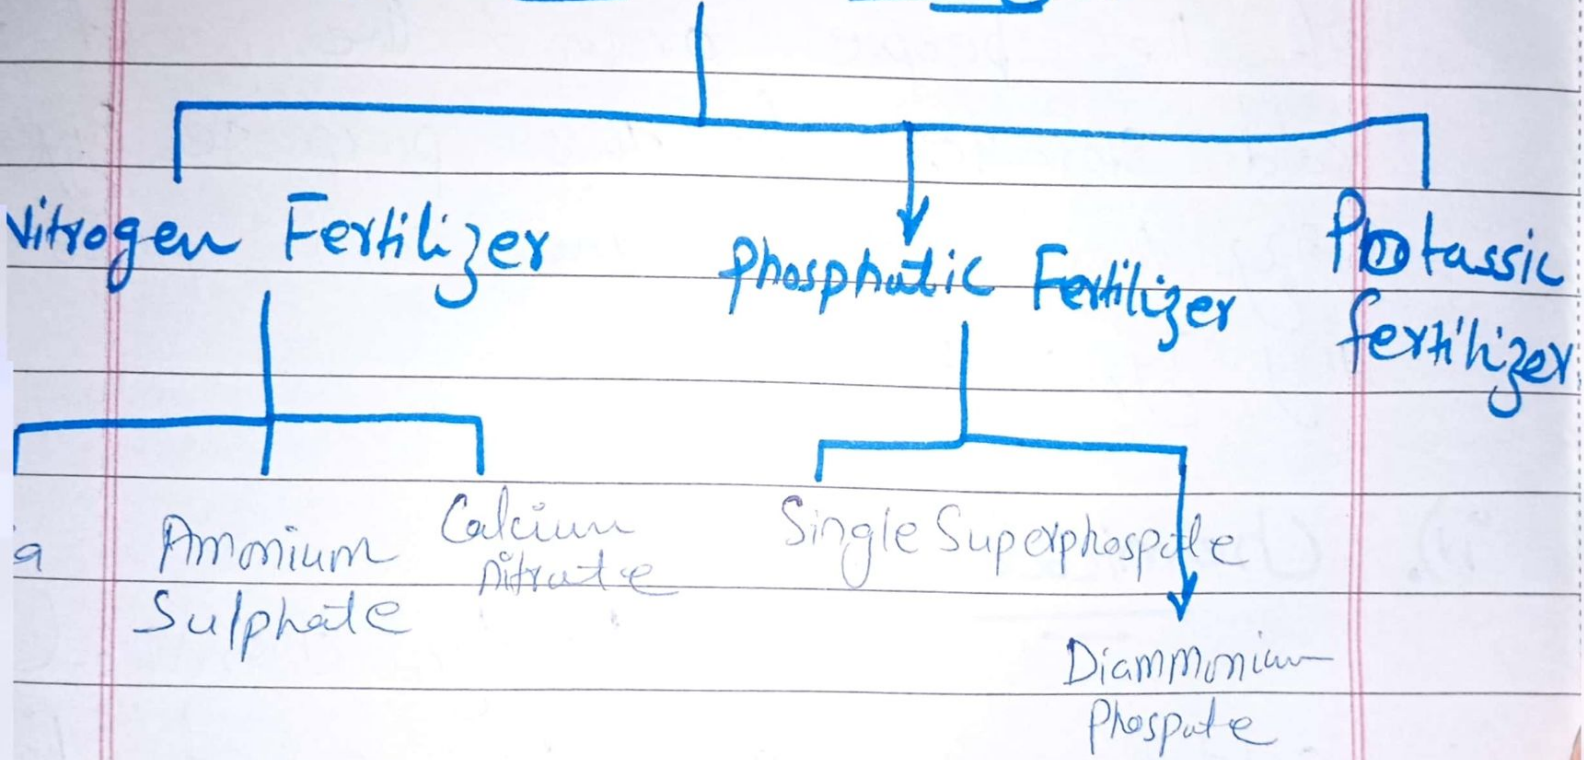 Nitrogen Fertilizer
Phosphatic Fertilizer
Potassic
fertilizer
Ammonium
Sulphate
Calcium
nitrate
Single Superphospate
Diammonium
Phospate